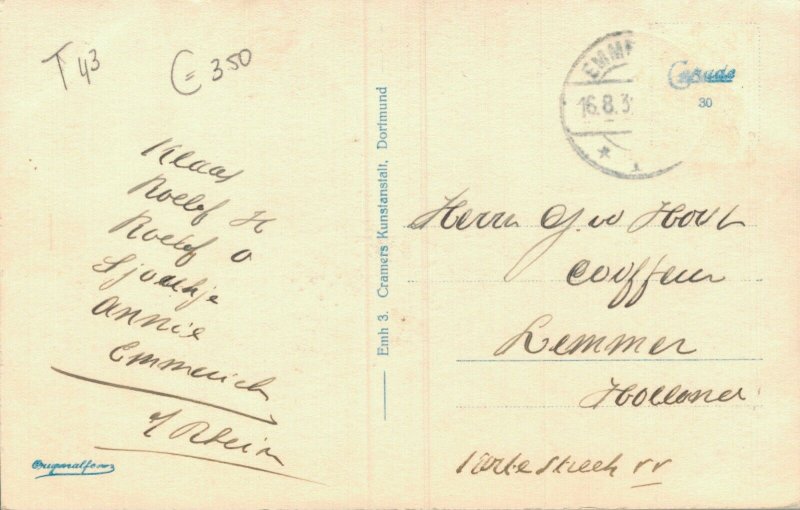 T 43
C= 350
Klaas
Roelof H
Roelof O
Sjoukje
Annie
Emmerich
a/ Rhein
Originalform
Emh 3. Cramers Kunstanstalt, Dortmund
EMM
16.8.3
30
Herrn G. v d Hout
Coiffeur
Lemmer
Holland